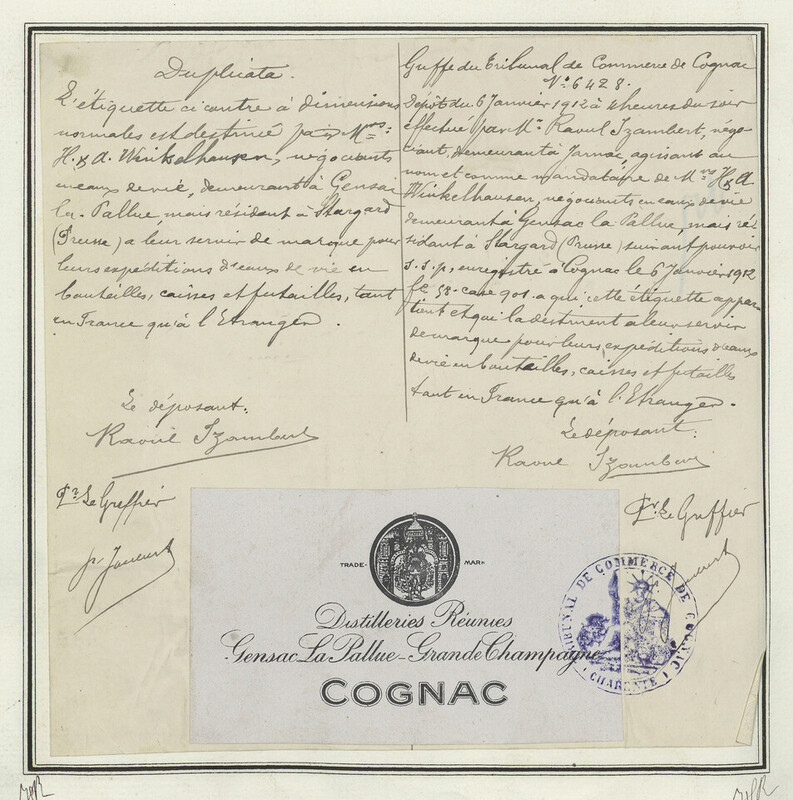 Duplicata.
L'étiquette ci contre à dimensions
normales est destinée par Mrs
H. & A. Winkelhausen, négociants
en eaux de vie, demeurant à Gensac
la-Pallue mais résidant à Stargard
(Prusse) a leur servir de marque pour
leurs expéditions d'eaux de vie en
bouteilles, caisses et futailles, tant
en France qu'à l'Etranger.
Le déposant:
Raoul Izambert
Pr. Le Greffier
Greffe du Tribunal de Commerce de Cognac
No. 6428.
Dépôt du 6 Janvier 1912 à 4 heures du soir
effectué par Mr. Raoul Izambert, négo-
ciant, demeurant à Jarnac, agissant au
nom et comme mandataire de Mrs H & A
Winkelhausen, négociants en eaux de vie
demeurant à Gensac la Pallue, mais ré-
sidant à Stargard (Prusse) suivant pouvoir
s.s.p, enregistré à Cognac le 6 Janvier 1912
fo. 58. case 901. a qui cette étiquette appar-
tient et qui la destinent a leur servir
de marque pour leurs expéditions d'eaux
de vie en bouteilles, caisses et futailles
tant en France qu'à l'Etranger.
Le déposant:
Raoul Izambert
Pr. Le Greffier
TRADE- MARK
Distilleries Réunies
Gensac La Pallue-Grande Champagne
COGNAC
TRIBUNAL DE COMMERCE DE COGNAC
CHARENTE